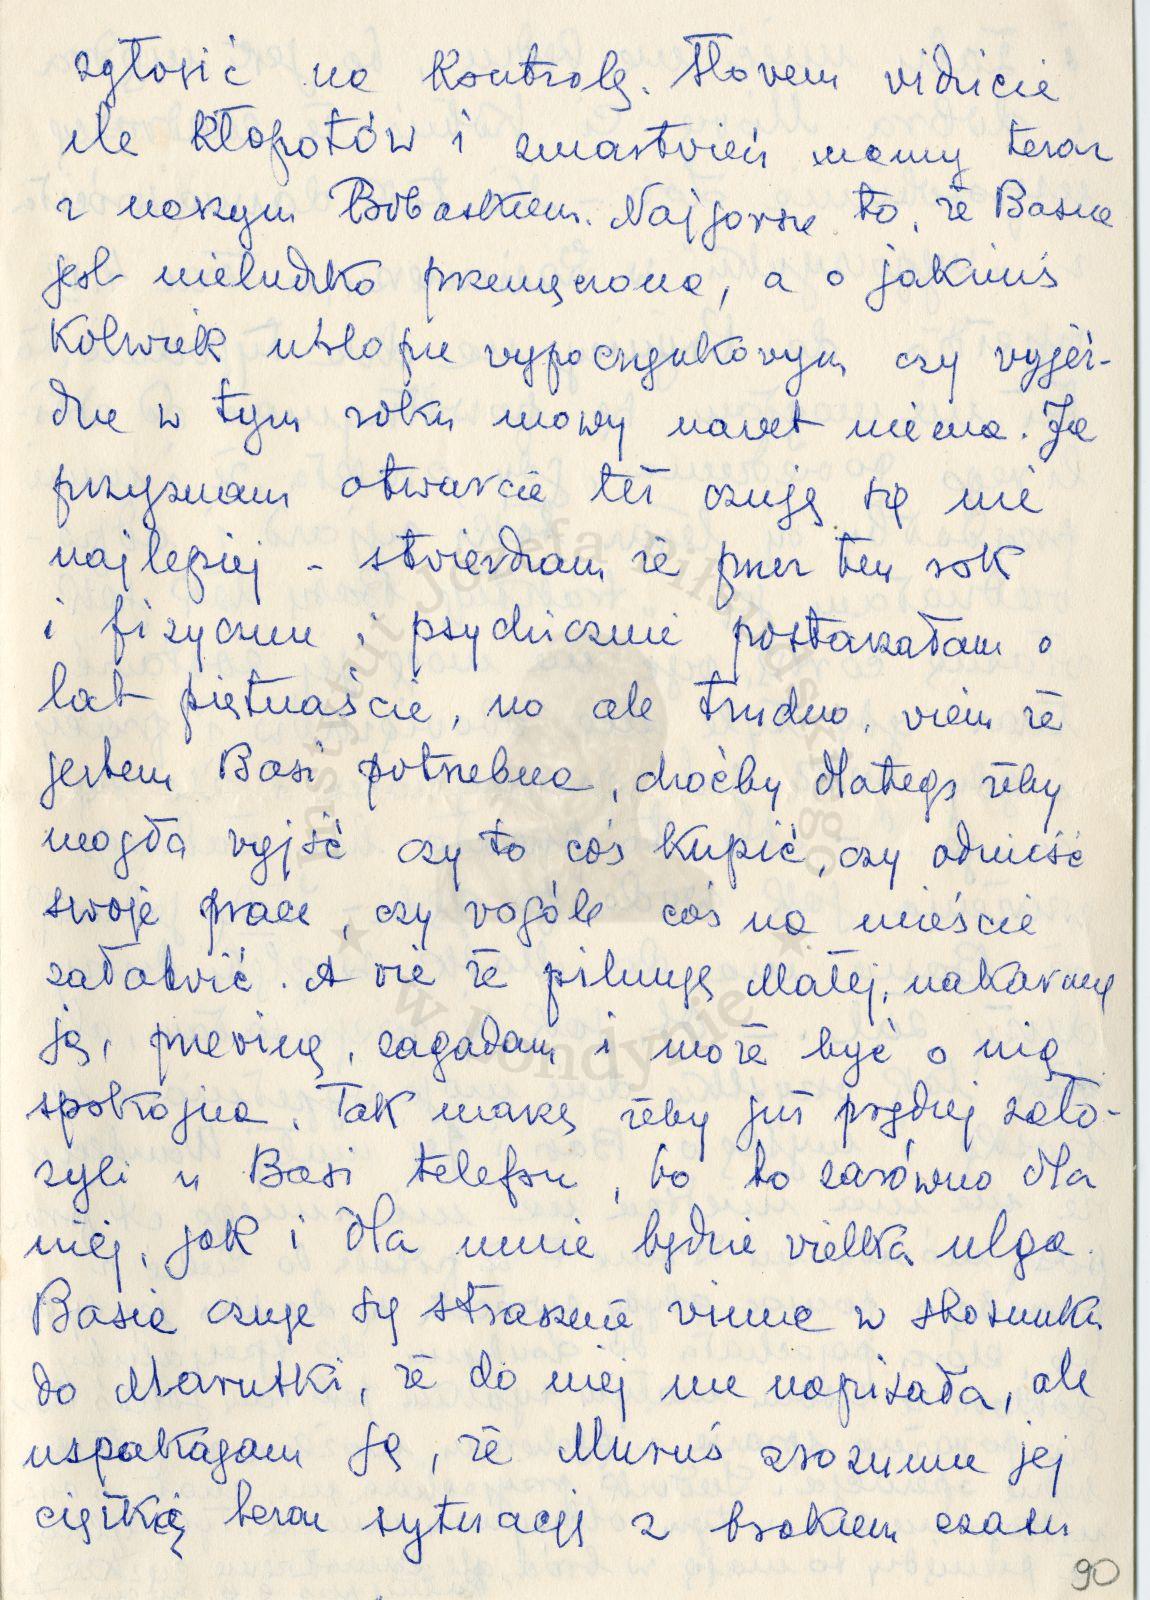 zgłosić na kontrolę. Słowem vidzicie
ile kłopotów i zmartvień mamy teraz
z naszym Bobaskiem. Najgorsze to, że Basia
jest nieludzko przemęczona, a o jakimś
kolwiek urlopie vypoczynkovym czy vyjeź-
dzie w tym roku mowy navet niema. Ja
przyznam otwarcie też czuję się nie
najlepiej - stvierdzam że przez ten rok
i fizycznie i psychicznie postarzałam o
lat piętnaście, no ale trudno, viem że
jestem Basi potrzebna, choćby dlatego żeby
mogła vyjść czy to coś kupić, czy odnieść
swoje prace, czy vogóle coś na mieście
załatvić. A vie że pilnuję Małej, nakarmię
ją, przevinę, zagadam i może być o nią
spokojna. Tak marzę żeby już prędzej zało-
żyli u Basi telefon, bo to zarówno dla
niej, jak i dla mnie będzie vielką ulgą.
Basia czuje się strasznie vinna w stosunku
do Maruszki, że do niej nie napisała, ale
uspakajam ją, że Muruś zrozumie jej
ciężką teraz sytuację z brakiem czasu
90
Instytut Józefa Piłsudskiego
w Londynie